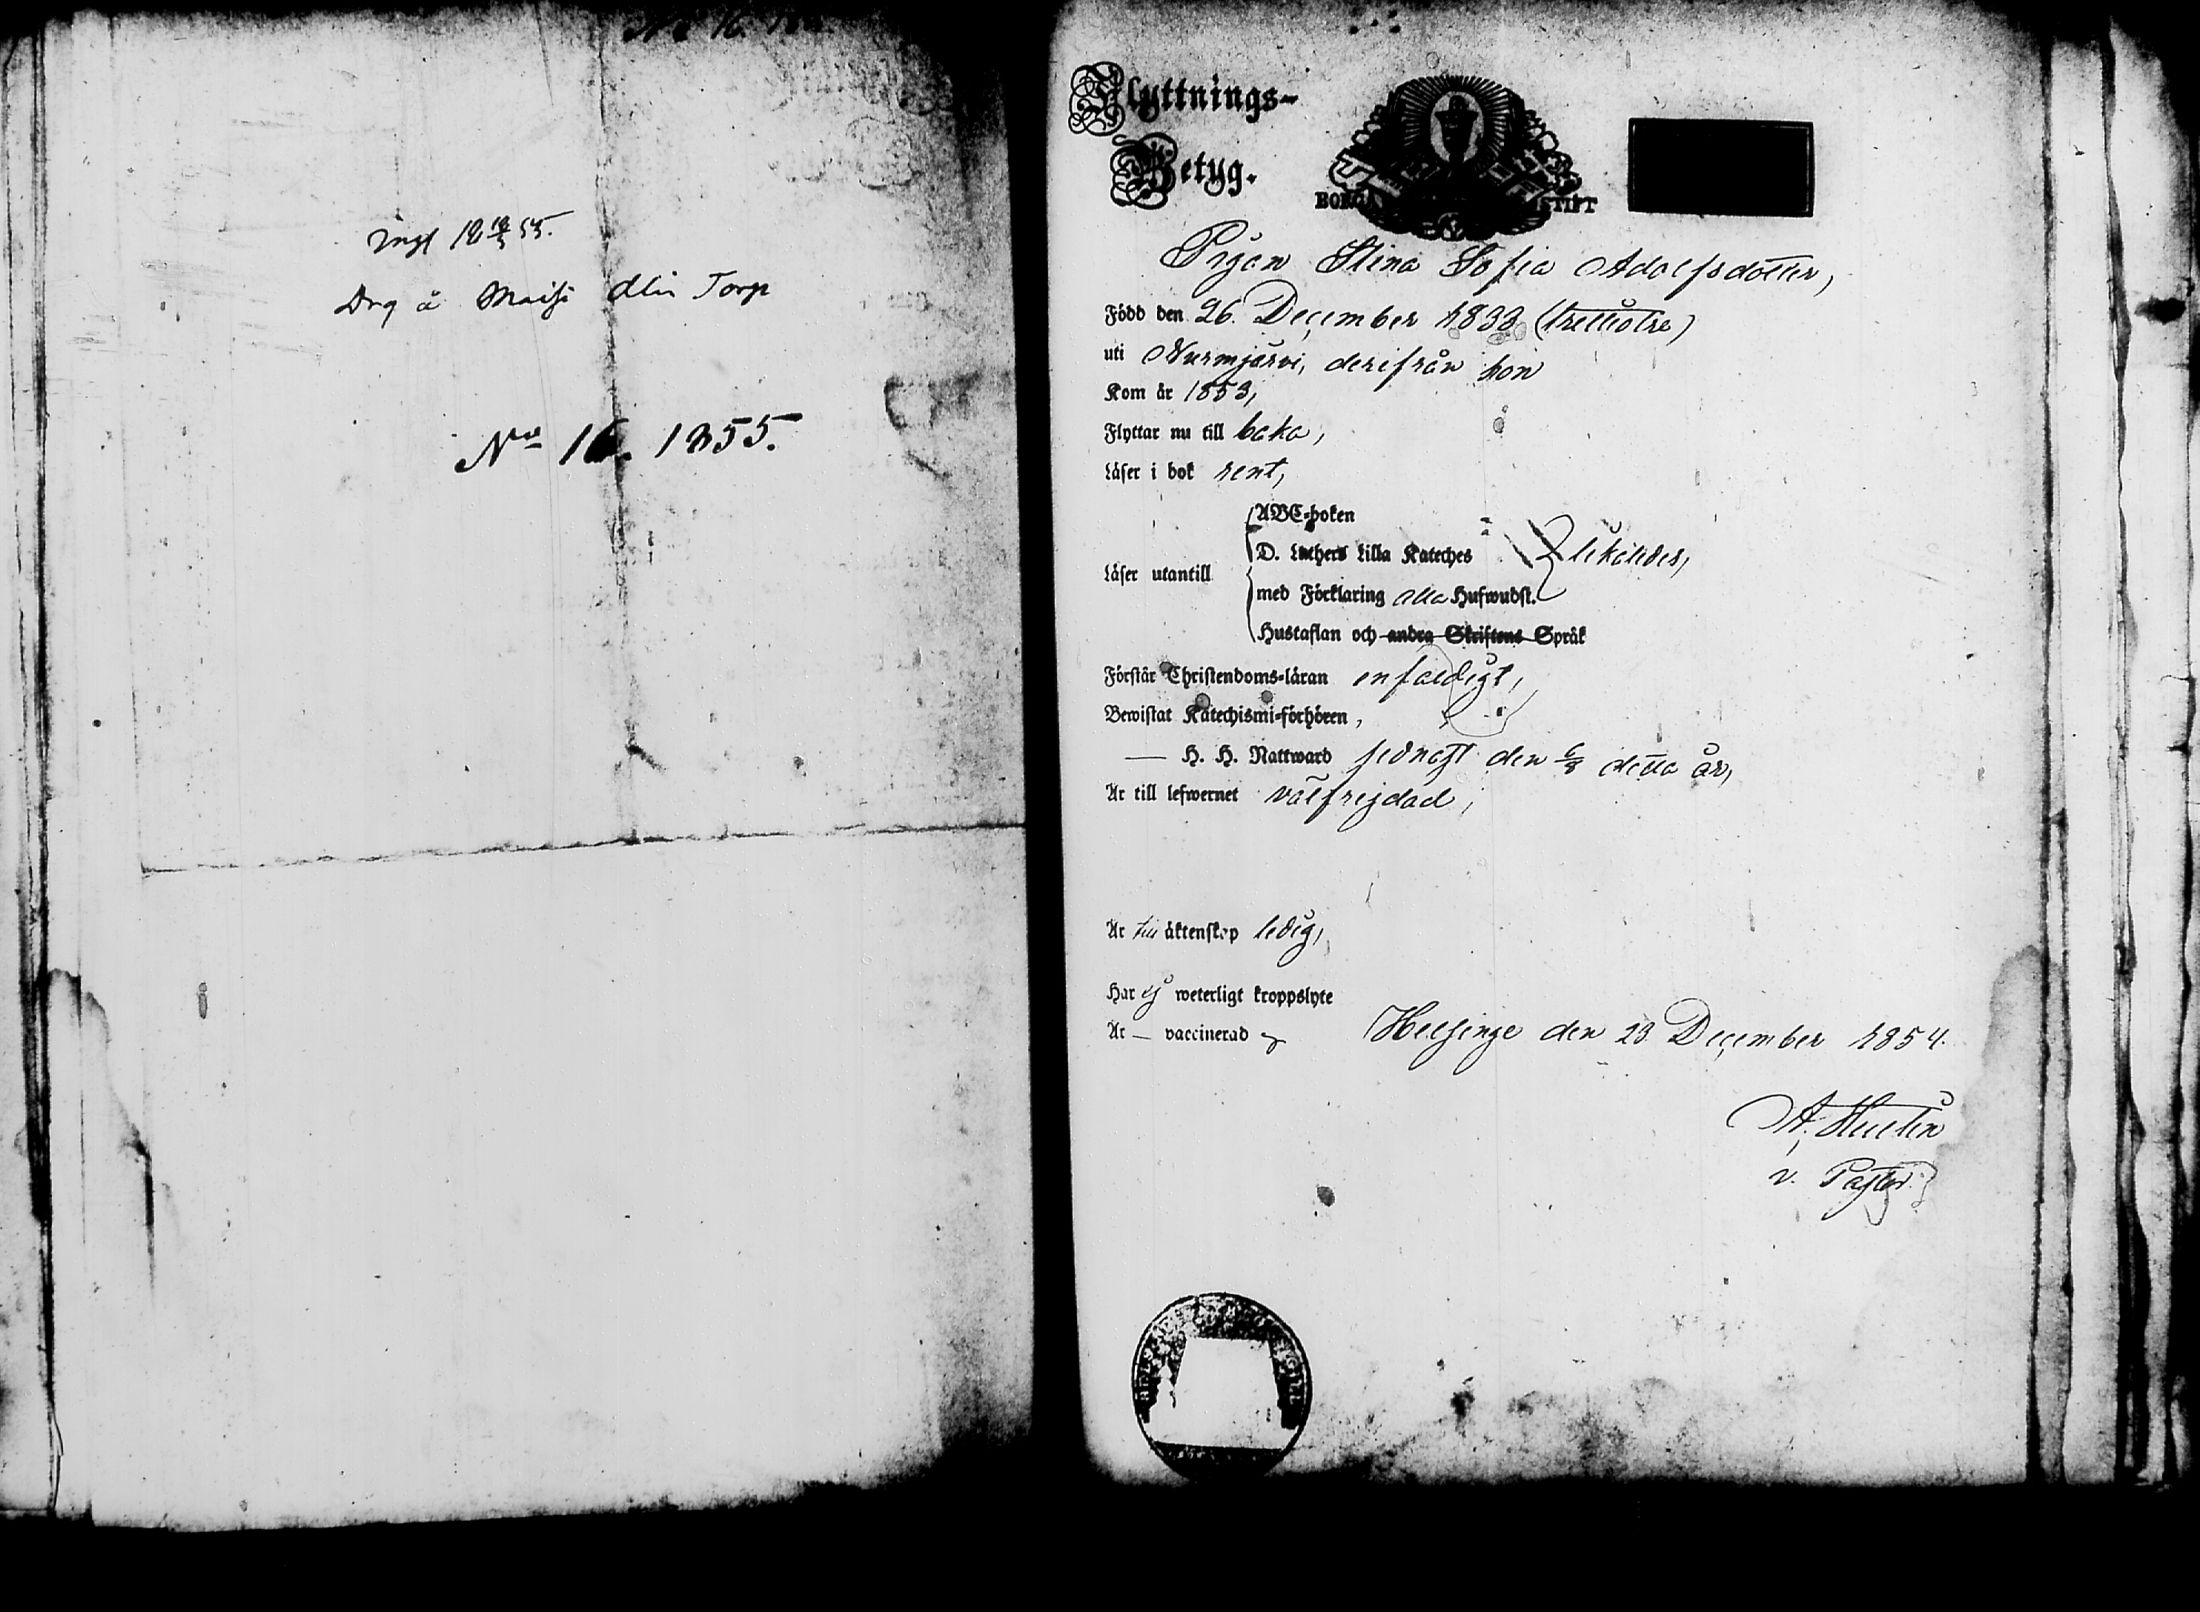 No 16.
ingf 18 18/3 55.
Drg å Maisi Torp
No 16. 1855.
Flyttnings-
Betyg.
BORGÅ STIFT
Pigan Stina Sofia Adolfsdotter,
Född den 26. December 1833 (trettiotre)
uti Nurmijärvi, derifrån hon
Kom år 1853,
Flyttar nu till baka,
Läser i bok rent,
Läser utantill
ABC-boken
D. Luthers Lilla Kateches
med Förklaring alla Hufwudst.
Hustaflan och andra Skriftens Språk
likaledes,
Förstår Christendoms-läran enfaldigt,
Bewistat Katechismi-förhören,
— H. H. Nattward sednast den 6/8 detta år,
Är till lefwernet välfrejdad,
Är till äktenskap ledig,
Har ej weterligt kroppslyte
Är — vaccinerad
Helsinge den 23. December 1854.
A. Hutén
v. Pastor.